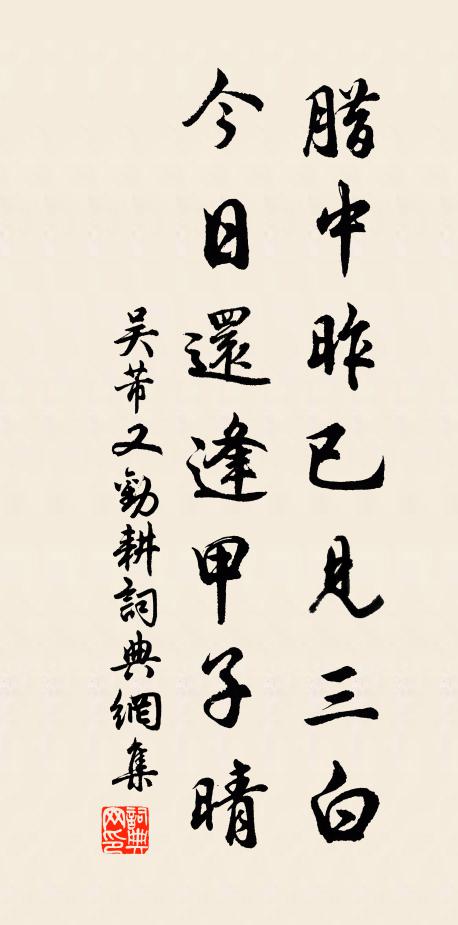 腊中昨已見三白
今日還逢甲子晴
吴芾又勸耕詞典網集
詞典网印